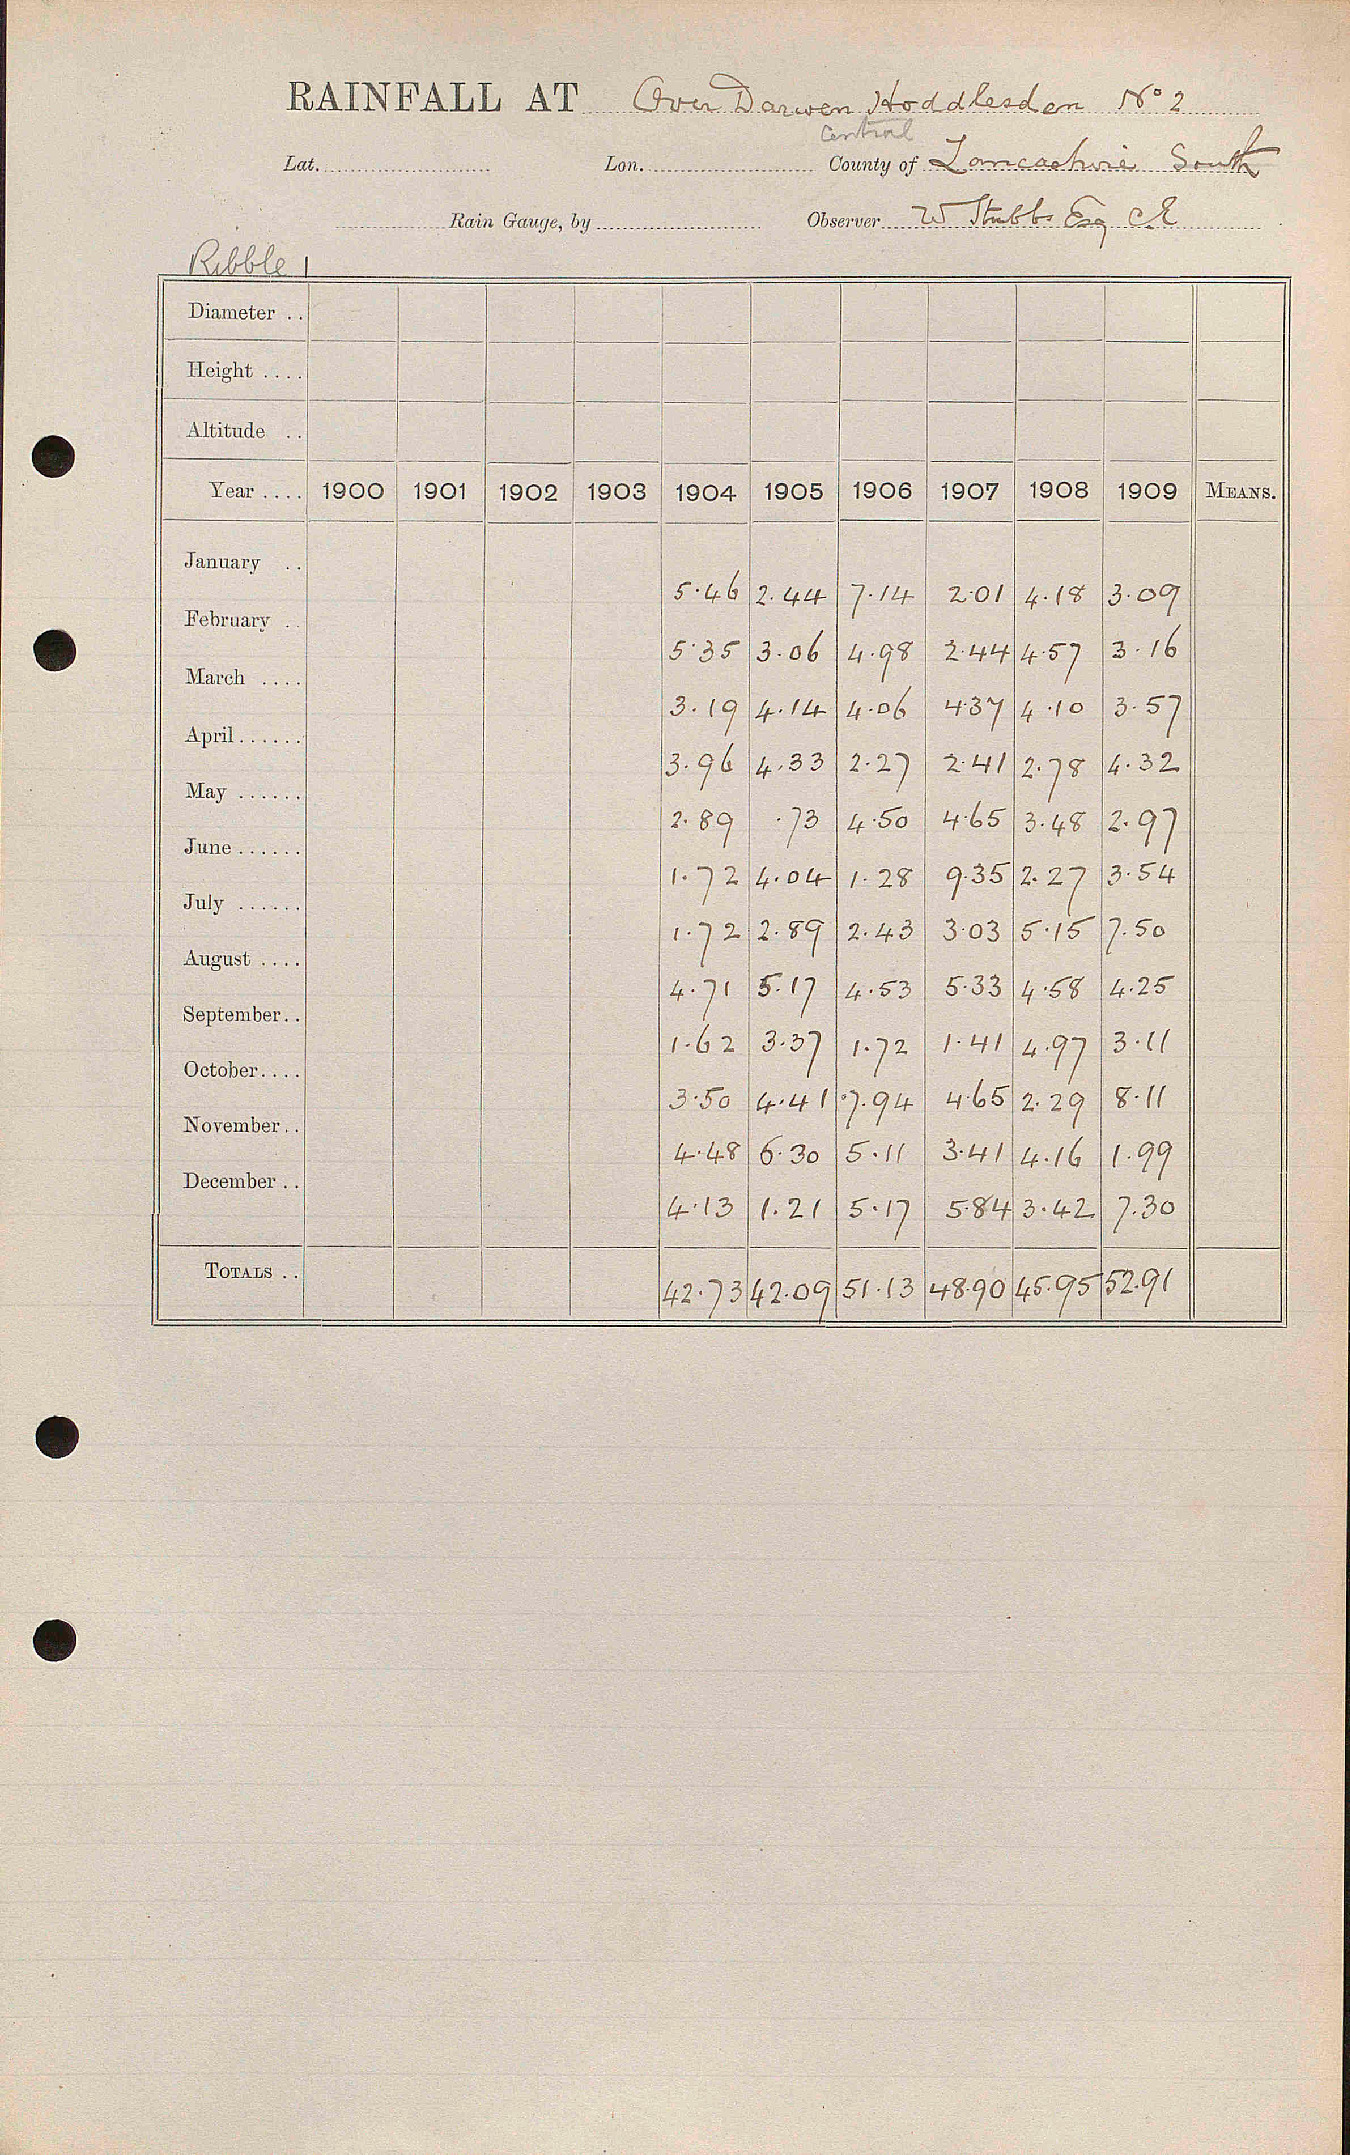 RAINFALL AT Over Darwen Hoddlesden No 2
Central
Lat. Lon. County of Lancashire South
Rain Gauge, by Observer W Stubbs Esq C.E
Ribble 1
Diameter ..
Height ....
Altitude ..
Year .... 1900 1901 1902 1903 1904 1905 1906 1907 1908 1909 MEANS.
January ..
5.46 2.44 7.14 2.01 4.18 3.09
February ..
5.35 3.06 4.98 2.44 4.57 3.16
March ....
3.19 4.14 4.06 4.37 4.10 3.57
April ......
3.96 4.33 2.27 2.41 2.78 4.32
May ......
2.89 .73 4.50 4.65 3.48 2.97
June ......
1.72 4.04 1.28 9.35 2.27 3.54
July ......
1.72 2.89 2.43 3.03 5.15 7.50
August ....
4.71 5.17 4.53 5.33 4.58 4.25
September..
1.62 3.37 1.72 1.41 4.97 3.11
October....
3.50 4.41 7.94 4.65 2.29 8.11
November..
4.48 6.30 5.11 3.41 4.16 1.99
December ..
4.13 1.21 5.17 5.84 3.42 7.30
TOTALS ..
42.73 42.09 51.13 48.90 45.95 52.91